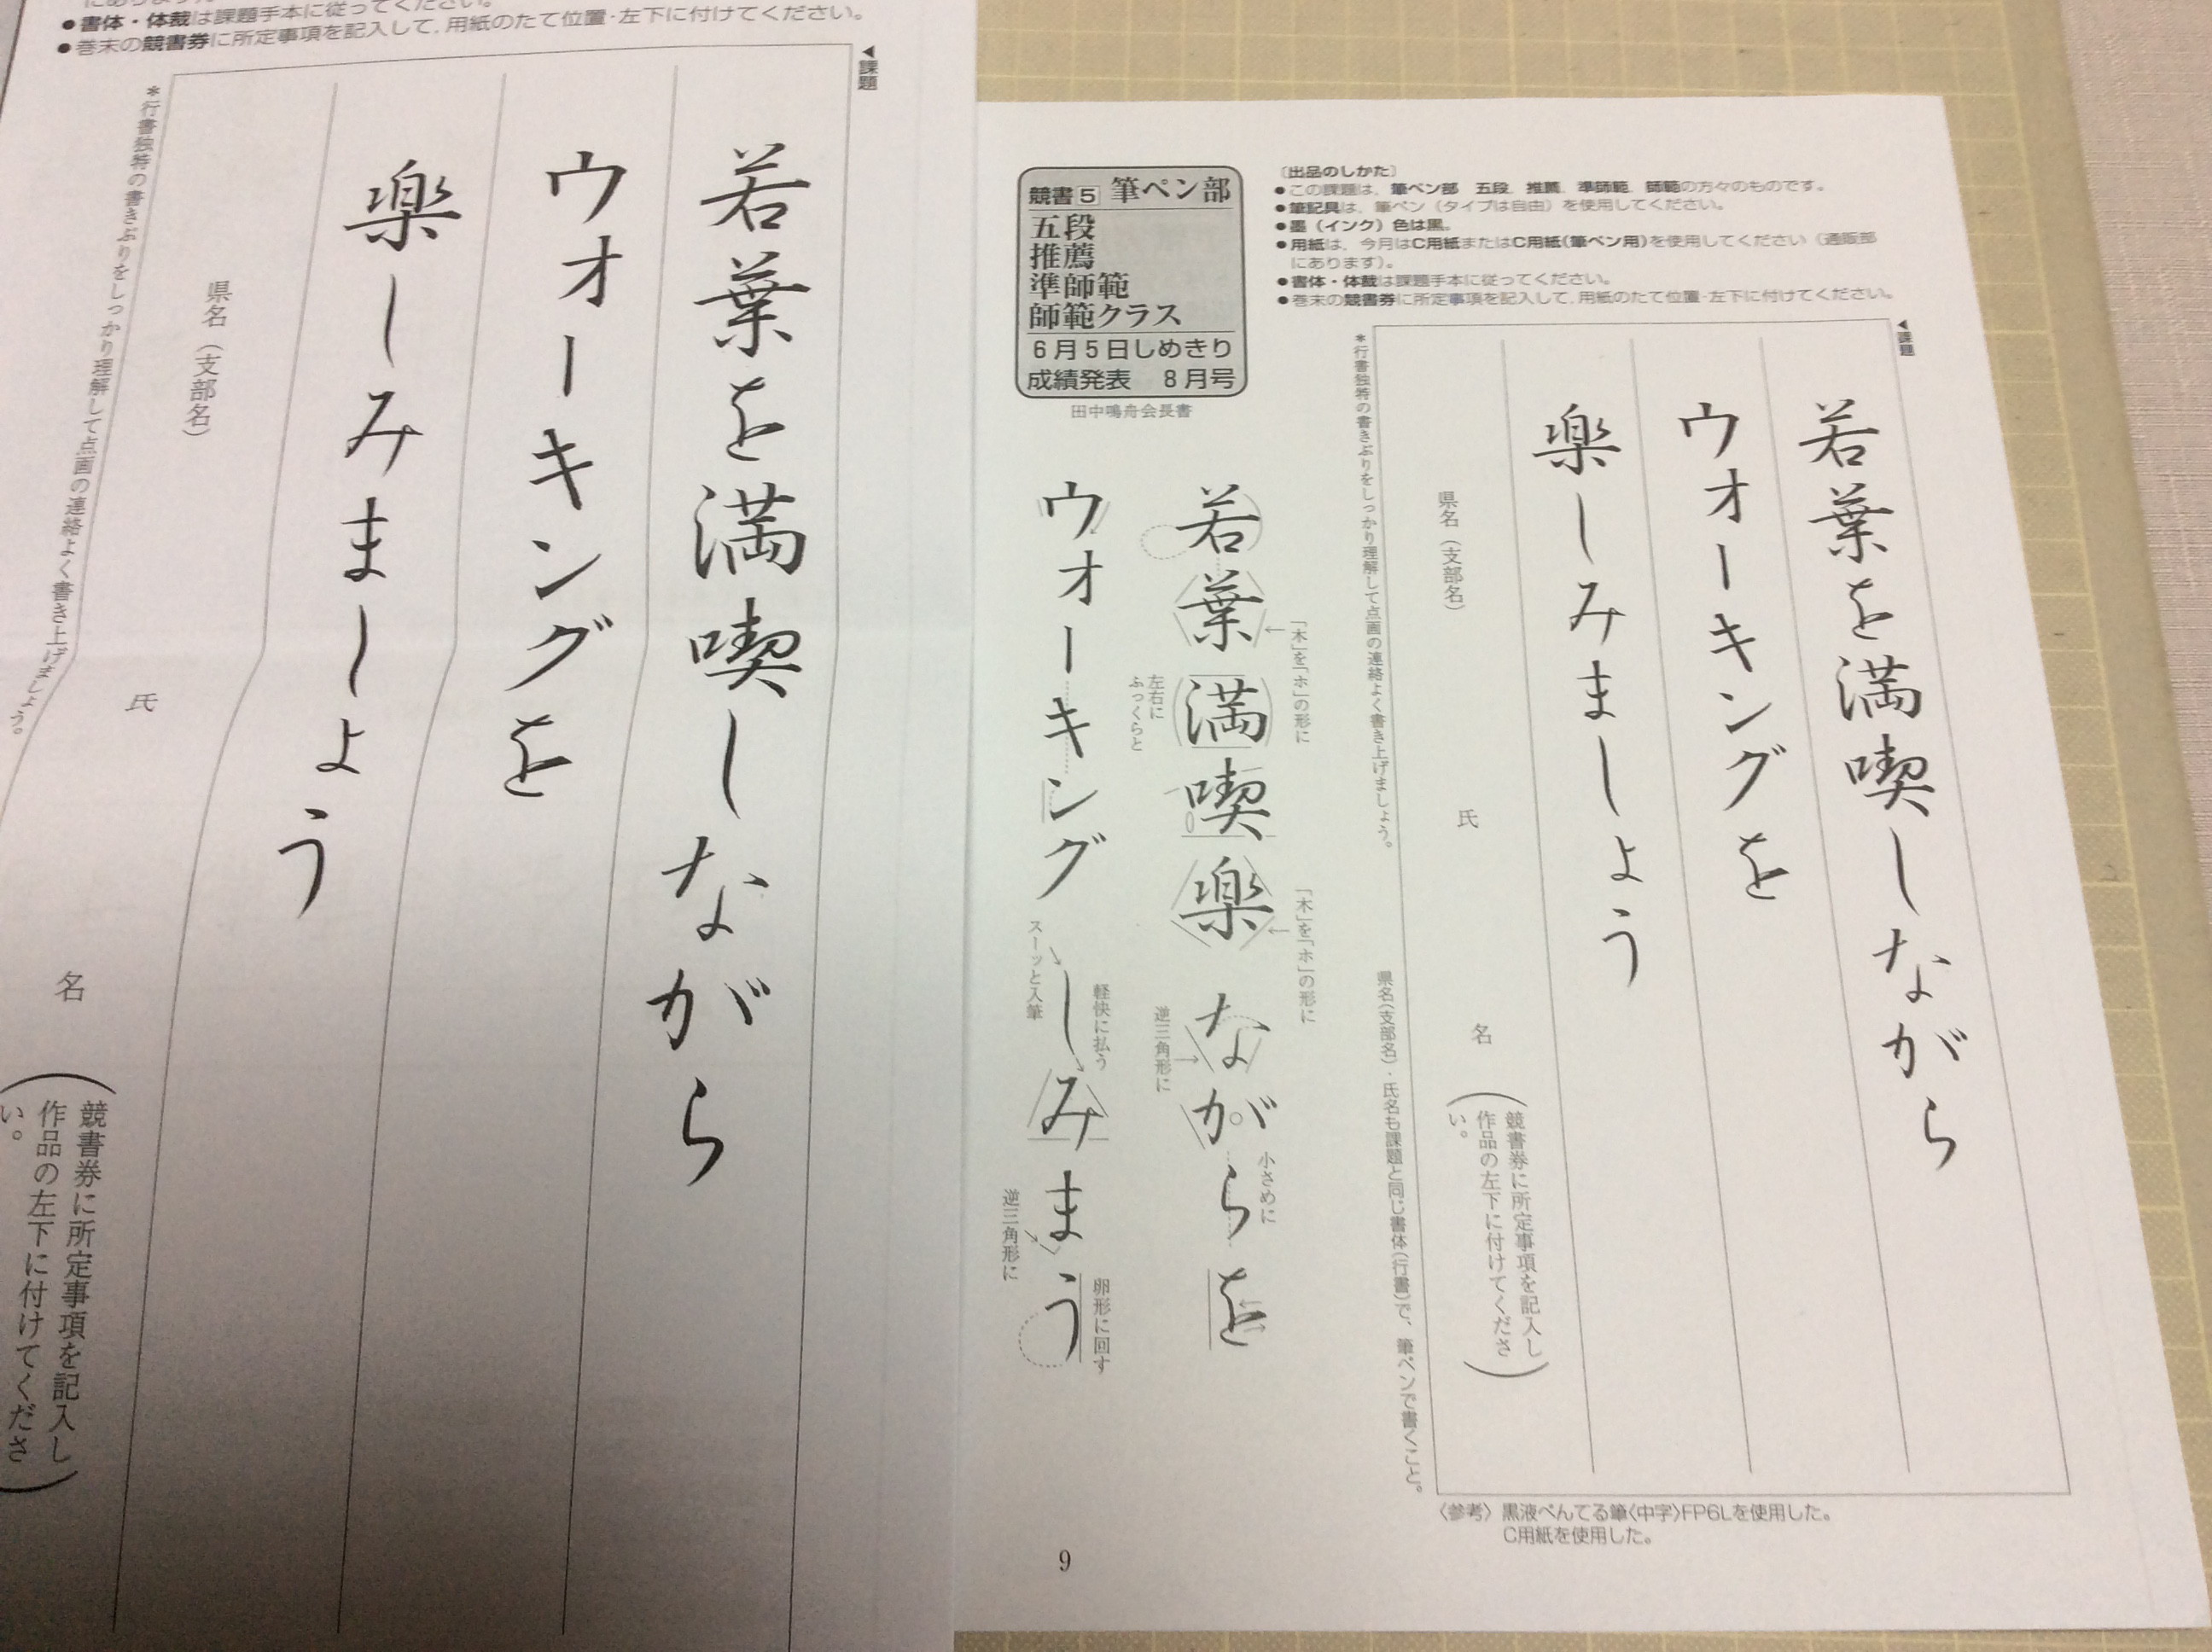 にあります)。
●書体・体裁は課題手本に従ってください。
●巻末の競書券に所定事項を記入して、用紙のたて位置・左下に付けてください。
◀課題
若葉を満喫しながら
ウオーキングを
楽しみましょう
県名(支部名)
氏
名
(競書券に所定事項を記入し
作品の左下に付けてくださ
い。)
*行書独特の書きぶりをしっかり理解して点画の連絡よく書き上げましょう。
〔出品のしかた〕
●この課題は、筆ペン部 五段、推薦、準師範、師範の方々のものです。
●筆記具は、筆ペン(タイプは自由)を使用してください。
●墨(インク)色は黒。
●用紙は、今月はC用紙またはC用紙(筆ペン用)を使用してください(通販部
にあります)。
●書体・体裁は課題手本に従ってください。
●巻末の競書券に所定事項を記入して、用紙のたて位置・左下に付けてください。
競書5 筆ペン部
五段
推薦
準師範
師範クラス
6月5日しめきり
成績発表 8月号
田中鳴舟会長書
◀課題
若葉を満喫しながら
ウオーキングを
楽しみましょう
県名(支部名)
氏
名
(競書券に所定事項を記入し
作品の左下に付けてくださ
い。)
*行書独特の書きぶりをしっかり理解して点画の連絡よく書き上げましょう。
県名(支部名)・氏名も課題と同じ書体(行書)で、筆ペンで書くこと。
「木」を「ホ」の形に
「木」を「ホ」の形に
小さめに
若葉満喫楽ながらを
左右に
ふっくらと
逆三角形に
軽快に払う
卵形に回す
ウオーキングしみまう
スーッと入筆
逆三角形に
〈参考〉黒液ぺんてる筆〈中字〉FP6Lを使用した。
C用紙を使用した。
9